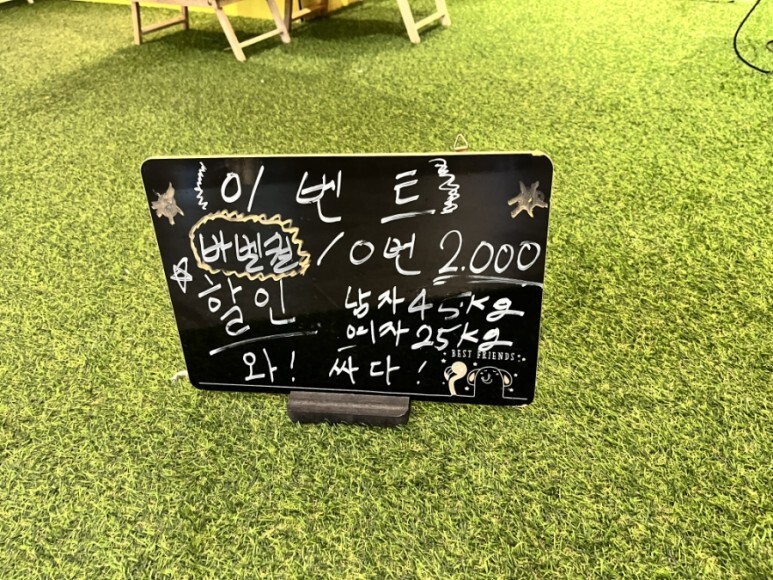 이벤트
바벨컬 10번 2.000
할인 남자 45kg
여자 25kg
BEST FRIENDS
와! 싸다!